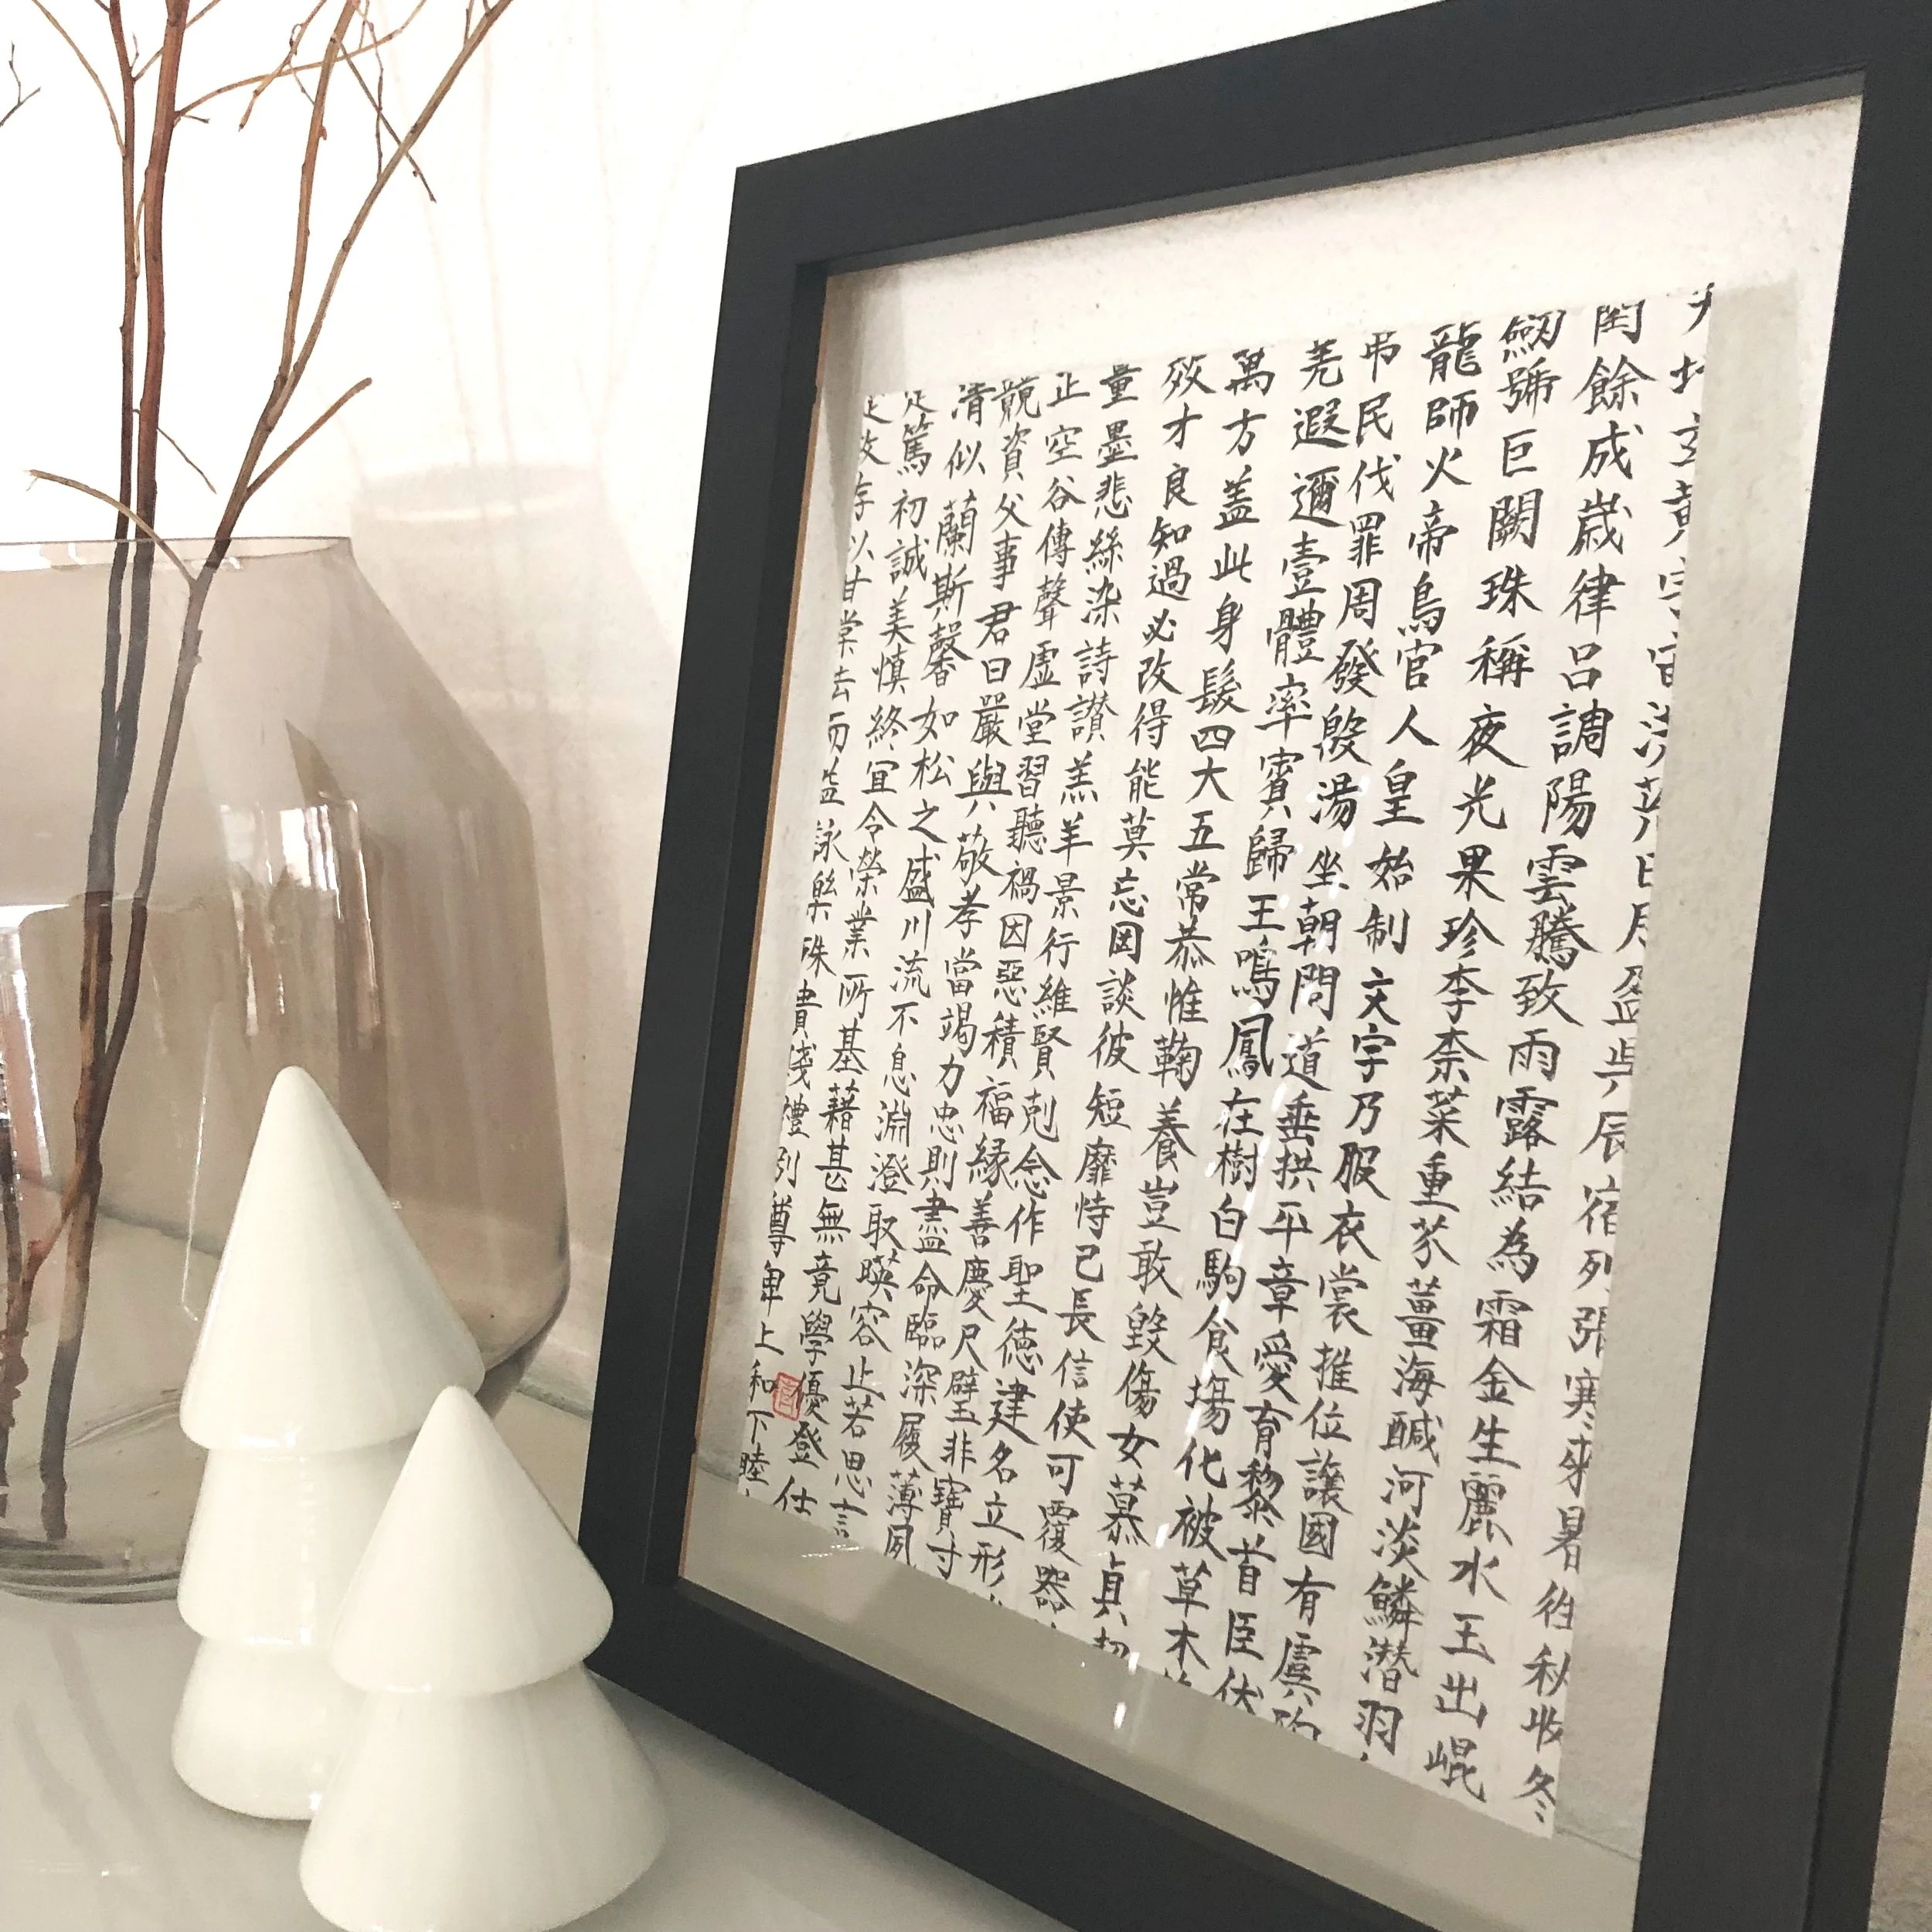 天地玄黃宇宙洪荒日月盈昃辰宿列張寒來暑往秋收冬
閏餘成歲律呂調陽雲騰致雨露結為霜金生麗水玉出崐
劒號巨闕珠稱夜光果珍李柰菜重芥薑海醎河淡鱗潛羽
龍師火帝鳥官人皇始制文字乃服衣裳推位讓國有虞陶
吊民伐罪周發殷湯坐朝問道垂拱平章愛育黎首臣伏
羌遐邇壹體率賓歸王鳴鳳在樹白駒食場化被草木
萬方盖此身髮四大五常恭惟鞠養豈敢毀傷女慕貞
效才良知過必改得能莫忘罔談彼短靡恃己長信使可覆器
量墨悲絲染詩讃羔羊景行維賢剋念作聖德建名立形
正空谷傳聲虛堂習聽禍因惡積福緣善慶尺璧非寶寸
競資父事君曰嚴與敬孝當竭力忠則盡命臨深履薄夙
清似蘭斯馨如松之盛川流不息淵澄取暎容止若思言
定篤初誠美慎終宜令榮業所基藉甚無竟學優登仕
政存以甘棠去而益詠樂殊貴賤禮別尊卑上和下睦